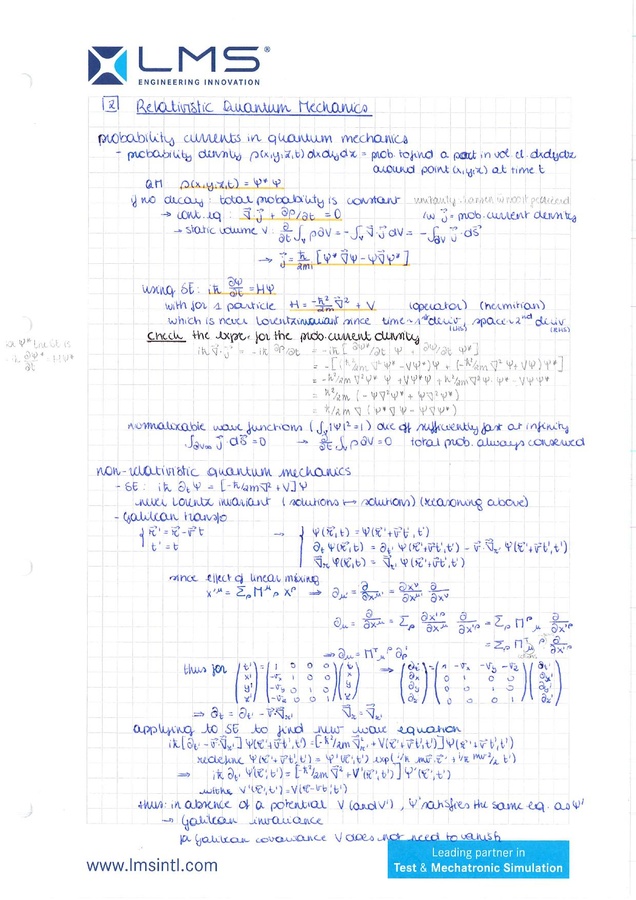 LMS®
ENGINEERING INNOVATION
2 Relativistic Quantum Mechanics
probability currents in quantum mechanics
- probability density ρ(x,y,z,t) dxdydz = prob to find a part in vol el. dxdydz
around point (x,y,z) at time t
QM ρ(x,y,z,t) = ψ* ψ
if no decay: total probability is constant
→ cont. eq : ∇⃗·j⃗ + ∂ρ/∂t = 0 (w j⃗ = prob. current density
→ static volume V: ∂/∂t ∫_V ρdV = -∫_V ∇⃗·j⃗ dV = -∫_∂V j⃗·dS⃗
→ j⃗ = ħ/2mi [ψ* ∇⃗ψ - ψ∇⃗ψ*]
using SE: iħ ∂ψ/∂t = Hψ
with for 1 particle H = -ħ²/2m ∇⃗² + V (operator) (hermitian)
which is never Lorentzinvariant since time → 1st deriv (LHS), space → 2nd deriv (RHS)
ψ* the SE is
-iħ ∂ψ*/∂t = Hψ*
Check the expr. for the prob. current density
iħ ∇⃗·j⃗ = -iħ ∂ρ/∂t = -iħ [∂ψ*/∂t ψ + ∂ψ/∂t ψ*]
= -[(ħ²/2m ∇²ψ* - Vψ*)ψ + (-ħ²/2m ∇²ψ + Vψ)ψ*]
= -ħ²/2m ∇²ψ* ψ + Vψ*ψ + ħ²/2m ∇²ψ·ψ* - Vψψ*
= ħ²/2m (-ψ∇²ψ* + ψ∇²ψ*)
= ħ/2m ∇ (ψ*∇ψ - ψ∇ψ*)
normalizable wave functions (∫_V |ψ|² = 1) die off sufficiently fast at infinity
∫_∂V∞ j⃗·dS⃗ = 0 → ∂/∂t ∫_V ρdV = 0 total prob. always conserved
non-relativistic quantum mechanics
- SE: iħ ∂tψ = [-ħ²/2m ∇² + V]ψ
never Lorentz invariant (solutions ↦ solutions) (reasoning above)
- Galilean transfo
{ r⃗' = r⃗ - v⃗t → { ψ(r⃗,t) = ψ(r⃗'+v⃗t',t')
t' = t ∂tψ(r⃗,t) = ∂t' ψ(r⃗'+v⃗t',t') - v⃗·∇⃗r' ψ(r⃗'+v⃗t',t')
∇⃗r ψ(r⃗,t) = ∇⃗r' ψ(r⃗'+v⃗t',t')
since effect of linear mixing
x'^μ = Σρ M^μ ρ x^ρ ⇒ ∂μ' = ∂/∂x'^μ = ∂x^ν/∂x'^μ ∂/∂x^ν
∂μ = ∂/∂x^μ = Σρ ∂x'^ρ/∂x^μ ∂/∂x'^ρ = Σρ M^ρ μ ∂/∂x'^ρ
= Σρ M^T μ ρ ∂/∂x'^ρ
⇒ ∂μ = M^T μ ρ ∂ρ'
thus for (t' x' y' z') = (1 0 0 0; -vx 1 0 0; -vy 0 1 0; -vz 0 0 1)(t x y z) ⇒ (∂t ∂x ∂y ∂z) = (1 -vx -vy -vz; 0 1 0 0; 0 0 1 0; 0 0 0 1)(∂t' ∂x' ∂y' ∂z')
⇒ ∂t = ∂t' - v⃗·∇⃗x' ∇⃗x = ∇⃗x'
applying to SE to find new wave equation
iħ [∂t' - v⃗·∇⃗r'] ψ(r⃗'+v⃗t',t') = [-ħ²/2m ∇⃗²r' + V(r⃗'+v⃗t',t')] ψ(r⃗'+v⃗t',t')
redefine ψ(r⃗'+v⃗t',t') = ψ'(r⃗',t') exp(i/ħ mv⃗·r⃗' + i/ħ mv²/2 t')
⇒ iħ ∂t' ψ'(r⃗',t') = [-ħ²/2m ∇⃗² + V'(r⃗',t')] ψ'(r⃗',t')
with V'(r⃗',t') = V(r⃗'-v⃗t',t')
thus: in absence of a potential V (and V'), ψ satisfies the same eq. as ψ'
→ Galilean invariance
for Galilean covariance V does not need to vanish
www.lmsintl.com
Leading partner in
Test & Mechatronic Simulation